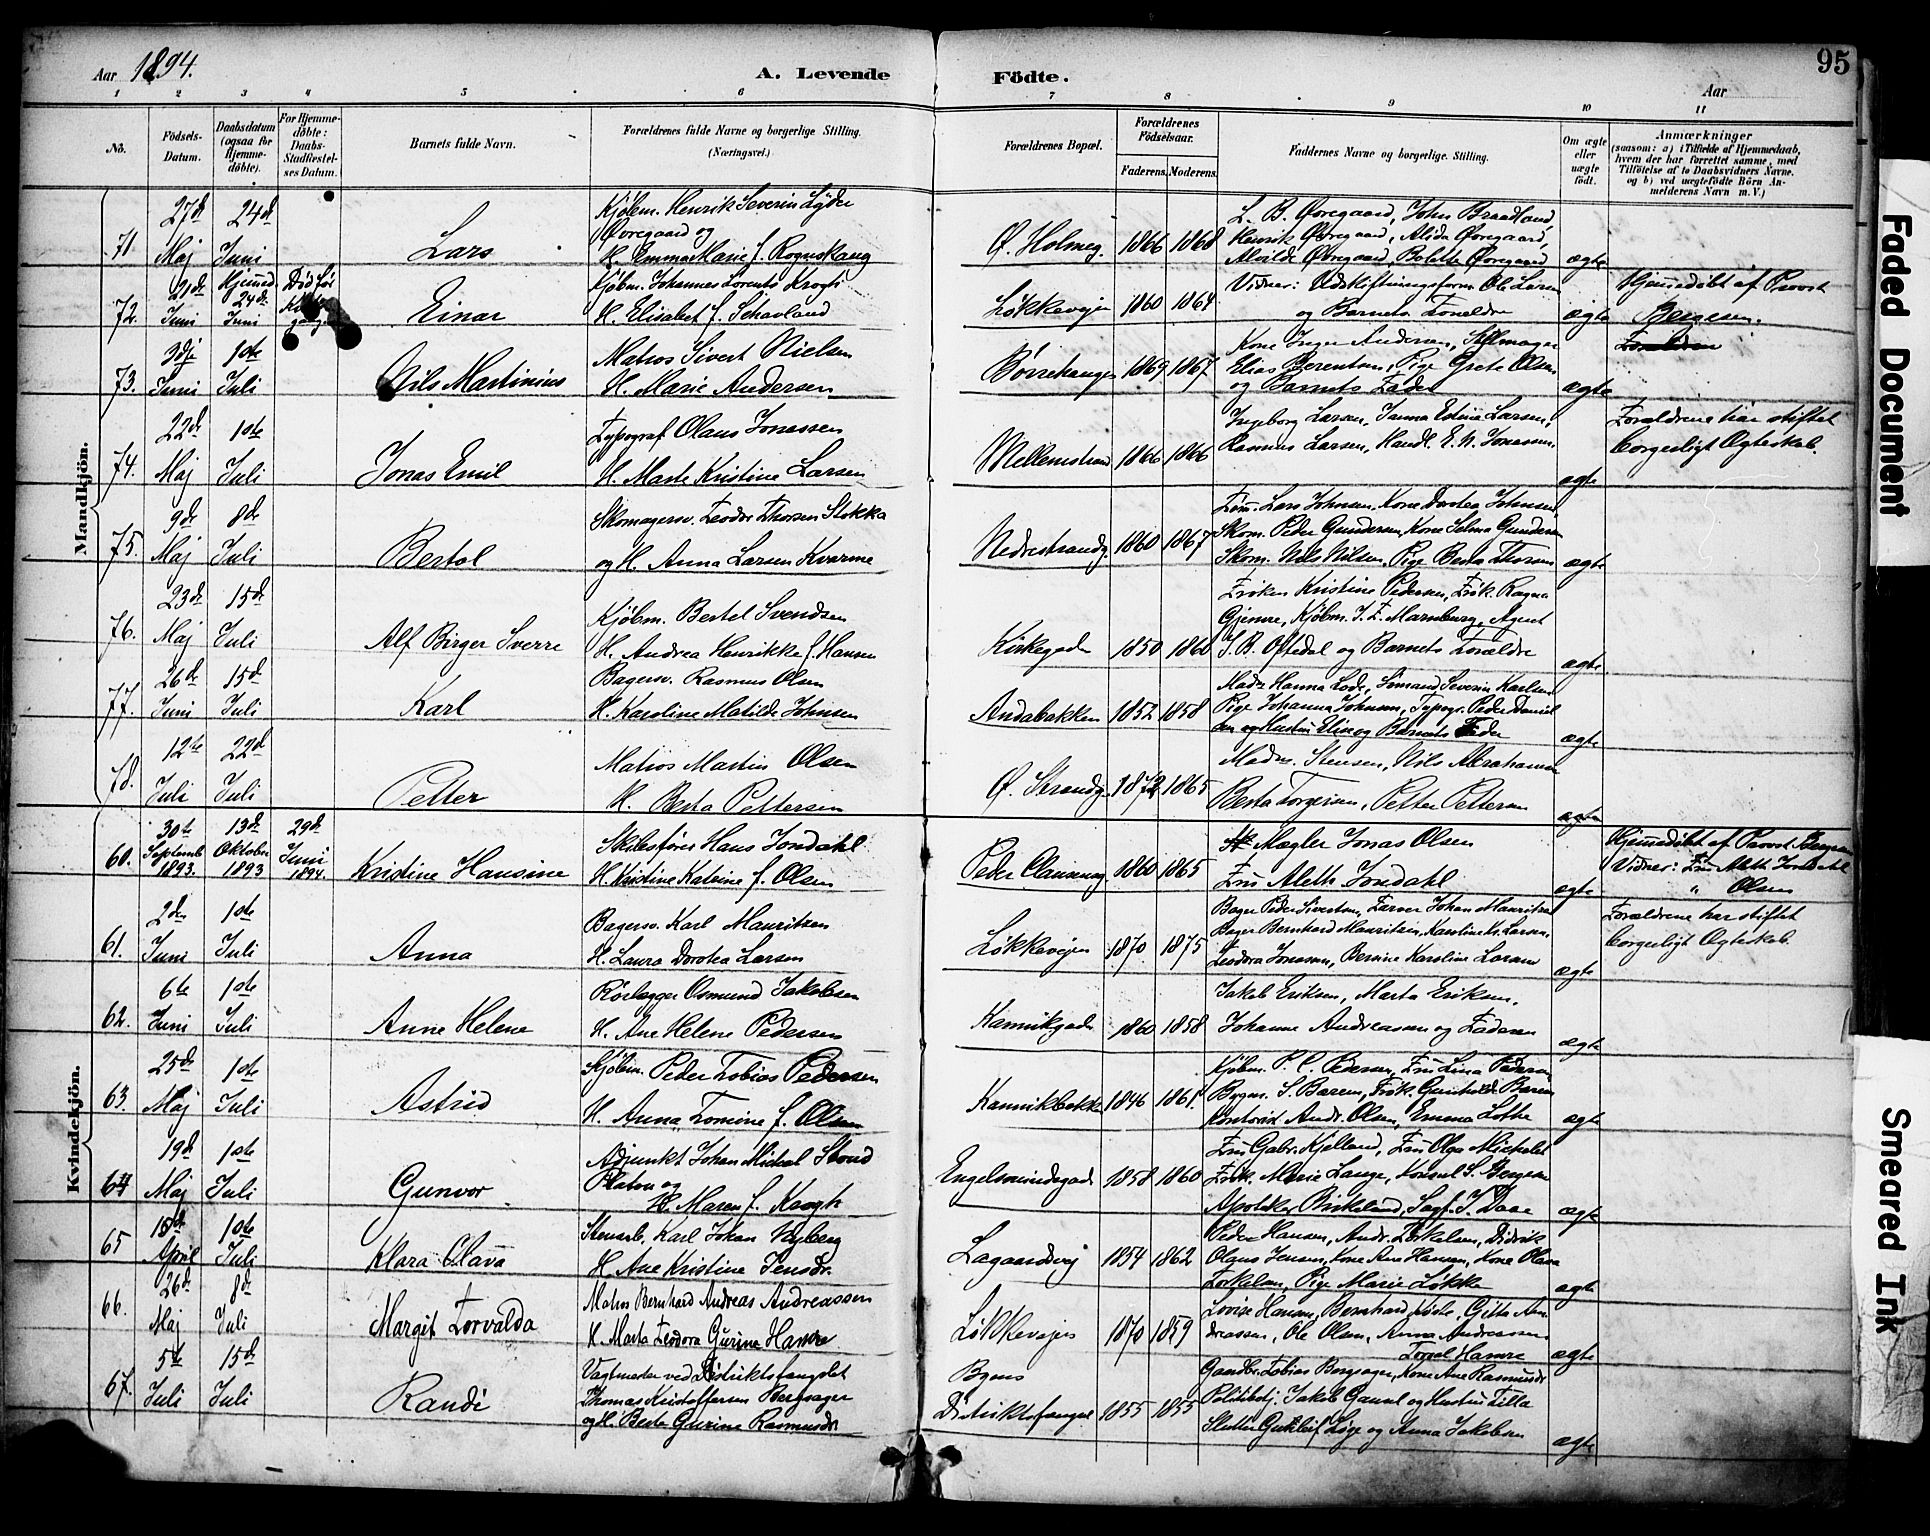 Aar 1894.
A. Levende
Födte.
Aar
95
1 2 3 4 5 6 7 8 9 10 11
No.
Födsels-Datum.
Daabsdatum (ogsaa for Hjemmedöbte).
For Hjemmedöbte: Daabs-Stadfæstelses Datum.
Barnets fulde Navn.
Forældrenes fulde Navne og borgerlige Stilling.
(Næringsvei.)
Forældrenes Bopæl.
Forældrenes Födselsaar.
Faderens. Moderens.
Faddernes Navne og borgerlige Stilling.
Om ægte eller uægte födt.
Anmærkninger
(saasom: a) i Tilfælde af Hjemmedaab,
hvem der har forrettet samme, med
Tilföielse af to Daabsvidners Navne,
og b) ved uægtefödte Börn An-
melderens Navn m. V.)
Mandkjön.
71. 27de Maj 24de Juni
Lars
Kjøbm. Henrik Severin Lyder
Øvregaard og
H. Emma Marie f. Rognskaug
Ø. Holmeg. 1866 1868
L. B. Øvregaard, John Braadland,
Henrik Øvregaard, Alida Øvregaard,
Alvilde Øvregaard, Bolette Øvregaard
ægte
72. 21de Juni Hjemmed. 24de Juni
Død før
Einar
Kjøbm. Johannes Lorentz Krogh
H. Elisabet f. Schavland
Løkkevejen 1860 1864
Vidner: Udskiftningsform. Ole Larsen
og Barnets Forældre
ægte
Hjemmedøbt af Provst
Bergesen.
73. 3dje Juni 1ste Juli
Nils Martinius
Matros Sivert Nielsen
H. Marie Andersen
Børrehaugen 1869 1867
Kone Inger Andersen, Stillmager
Elias Berentsen, Pige Grete Olsen
og Barnets Fader
ægte
74. 22de Maj 1ste Juli
Jonas Emil
Typograf Olaus Jonassen
H. Marte Kristine Larsen
Mellemstraed 1866 1866
Ingeborg Larsen, Janna Estine Larsen,
Rasmus Larsen, Handl. E. N. Jonassen.
ægte
Forældrene har stiftet
borgerligt Ægteskab.
75. 9de Maj 8de Juli
Bertol
Skomagersv. Teodor Thorsen Stokka
og H. Anna Larsen Kvarme
Nedrestrandg 1860 1867
Tøm. Lars Johnsen, Kone Dorotea Johnsen
Skom. Peder Gundersen, Kone Selma Gundersen
Skom. Nils Nilsen, Pige Berta Thorsen
ægte
76. 23de Maj 15de Juli
Alf Birger Sverre
Kjøbm. Bertel Svendsen
H. Andrea Henrikke f. Hansen
Kirkegade 1850 1860
Frøken Kristine Pedersen, Frøk. Ragna
Gjemre, Kjøbm. J. F. Marnburg, Agent
S. B. Oftedal og Barnets Forældre
ægte
77. 26de Juni 15de Juli
Karl
Bagersv. Rasmus Olsen
H. Karoline Matilde Johnsen
Andabakken 1852 1858
Madm Hanna Lode, Sømand Severin Karlsen
Pige Johanna Johnsen, Typogr. Peder Daniel
sen og Hustru Eline og Barnets Fader
ægte
78. 12te Juli 22de Juli
Petter
Matros Martin Olsen
H. Berta Pettersen
Ø. Strandg. 1872 1865
Madm. Stensen, Nils Abrahamsen
Berta Torgersen, Petter Pettersen
ægte
Kvindekjön.
60. 30te Septemb 1893. 13de Oktober 1893 29de Juni 1894.
Kristine Hansine
Skibsfører Hans Jondahl
H. Kristine Katrine f. Olsen
Peder Clausensg 1860 1865
Mægler Jonas Olsen
Fru Aleth Jondahl
ægte
Hjemmedøbt af Provst Bergesen
Vidner: Fru Aleth Jondahl
" Olsen
61. 2den Juni 1ste Juli
Anna
Bagersv. Karl Mauritzen
H. Laura Dorotea Larsen
Løkkevejen 1870 1875
Bager Peder Sivertsen, Farver Johan Mauritzen
Bager Bernhard Mauritzen, Karoline Kr. Larsen,
Teodora Jonassen, Bernine Karoline Larsen
ægte
Forældrene har stiftet
borgerligt Ægteskab.
62. 6te Juni 1ste Juli
Anne Helene
Rørlægger Osmund Jakobsen
H. Ane Helene Pedersen
Kannikgade 1860 1858
Jakob Eriksen, Marta Eriksen.
Johanne Andreassen og Faderen
ægte
63. 25de Maj 1ste Juli
Astrid
Kjøbm. Peder Tobias Pedersen
H. Anna Tomine f. Olsen
Kannikbakke 1846 1861.
Kjøbm. P. C. Pedersen, Fru Lina Pedersen
Bygm. S. Barem, Frøk. Gunhild Barem
Kontorist Andr. Olsen, Emma Lothe
ægte
64 19de Maj 1ste Juli
Gunvor
Adjunkt Johan Michael Stoud
Platou og
H. Maren f. Krogh
Engelsmindegade 1858 1860
Fru Gabr. Kjelland, Fru Olga Michelet
Frøk. Marie Lange, Konsul S. Bergesen
Apotheker Birkeland, Sagf. J. Daae
ægte
65 15de April 1ste Juli
Klara Olava
Stenarb. Karl Johan Nyberg
H. Ane Kristine Jensdr.
Lagaardsvej 1854 1862
Peder Hansen, Andr. Torkelsen, Didrik
Olaus Jensen, Kone Ane Hansen, Kone Olava
Torkelsen, Pige Marie Løkke
ægte
66. 26de Maj 8de Juli
Margit Torvalda
Matros Bernhard Andreas Andreassen
H. Marta Teodora Gurine Hamre
Løkkevejen 1870 1859
Lovise Hansen, Bernhard Høste, Gitta An-
dreassen, Ole Olsen, Anna Andreassen
Torval Hamre
ægte
67. 5te Juli 15de Juli
Randi
Vagtmester ved Distriktsfængslet
Thomas Kristoffersen Bergsager
og H. Berta Gurine Rasmusdr.
Byens
Distriktsfængsel 1855 1855
Gaardbr. Tobias Bergsager, Kone Ane Rasmusdr
Politibetj. Jakob Gausel og Hustru Tilla
Slutter Gutleif Løge og Anna Jakobsen
ægte
Faded Document
Smeared Ink